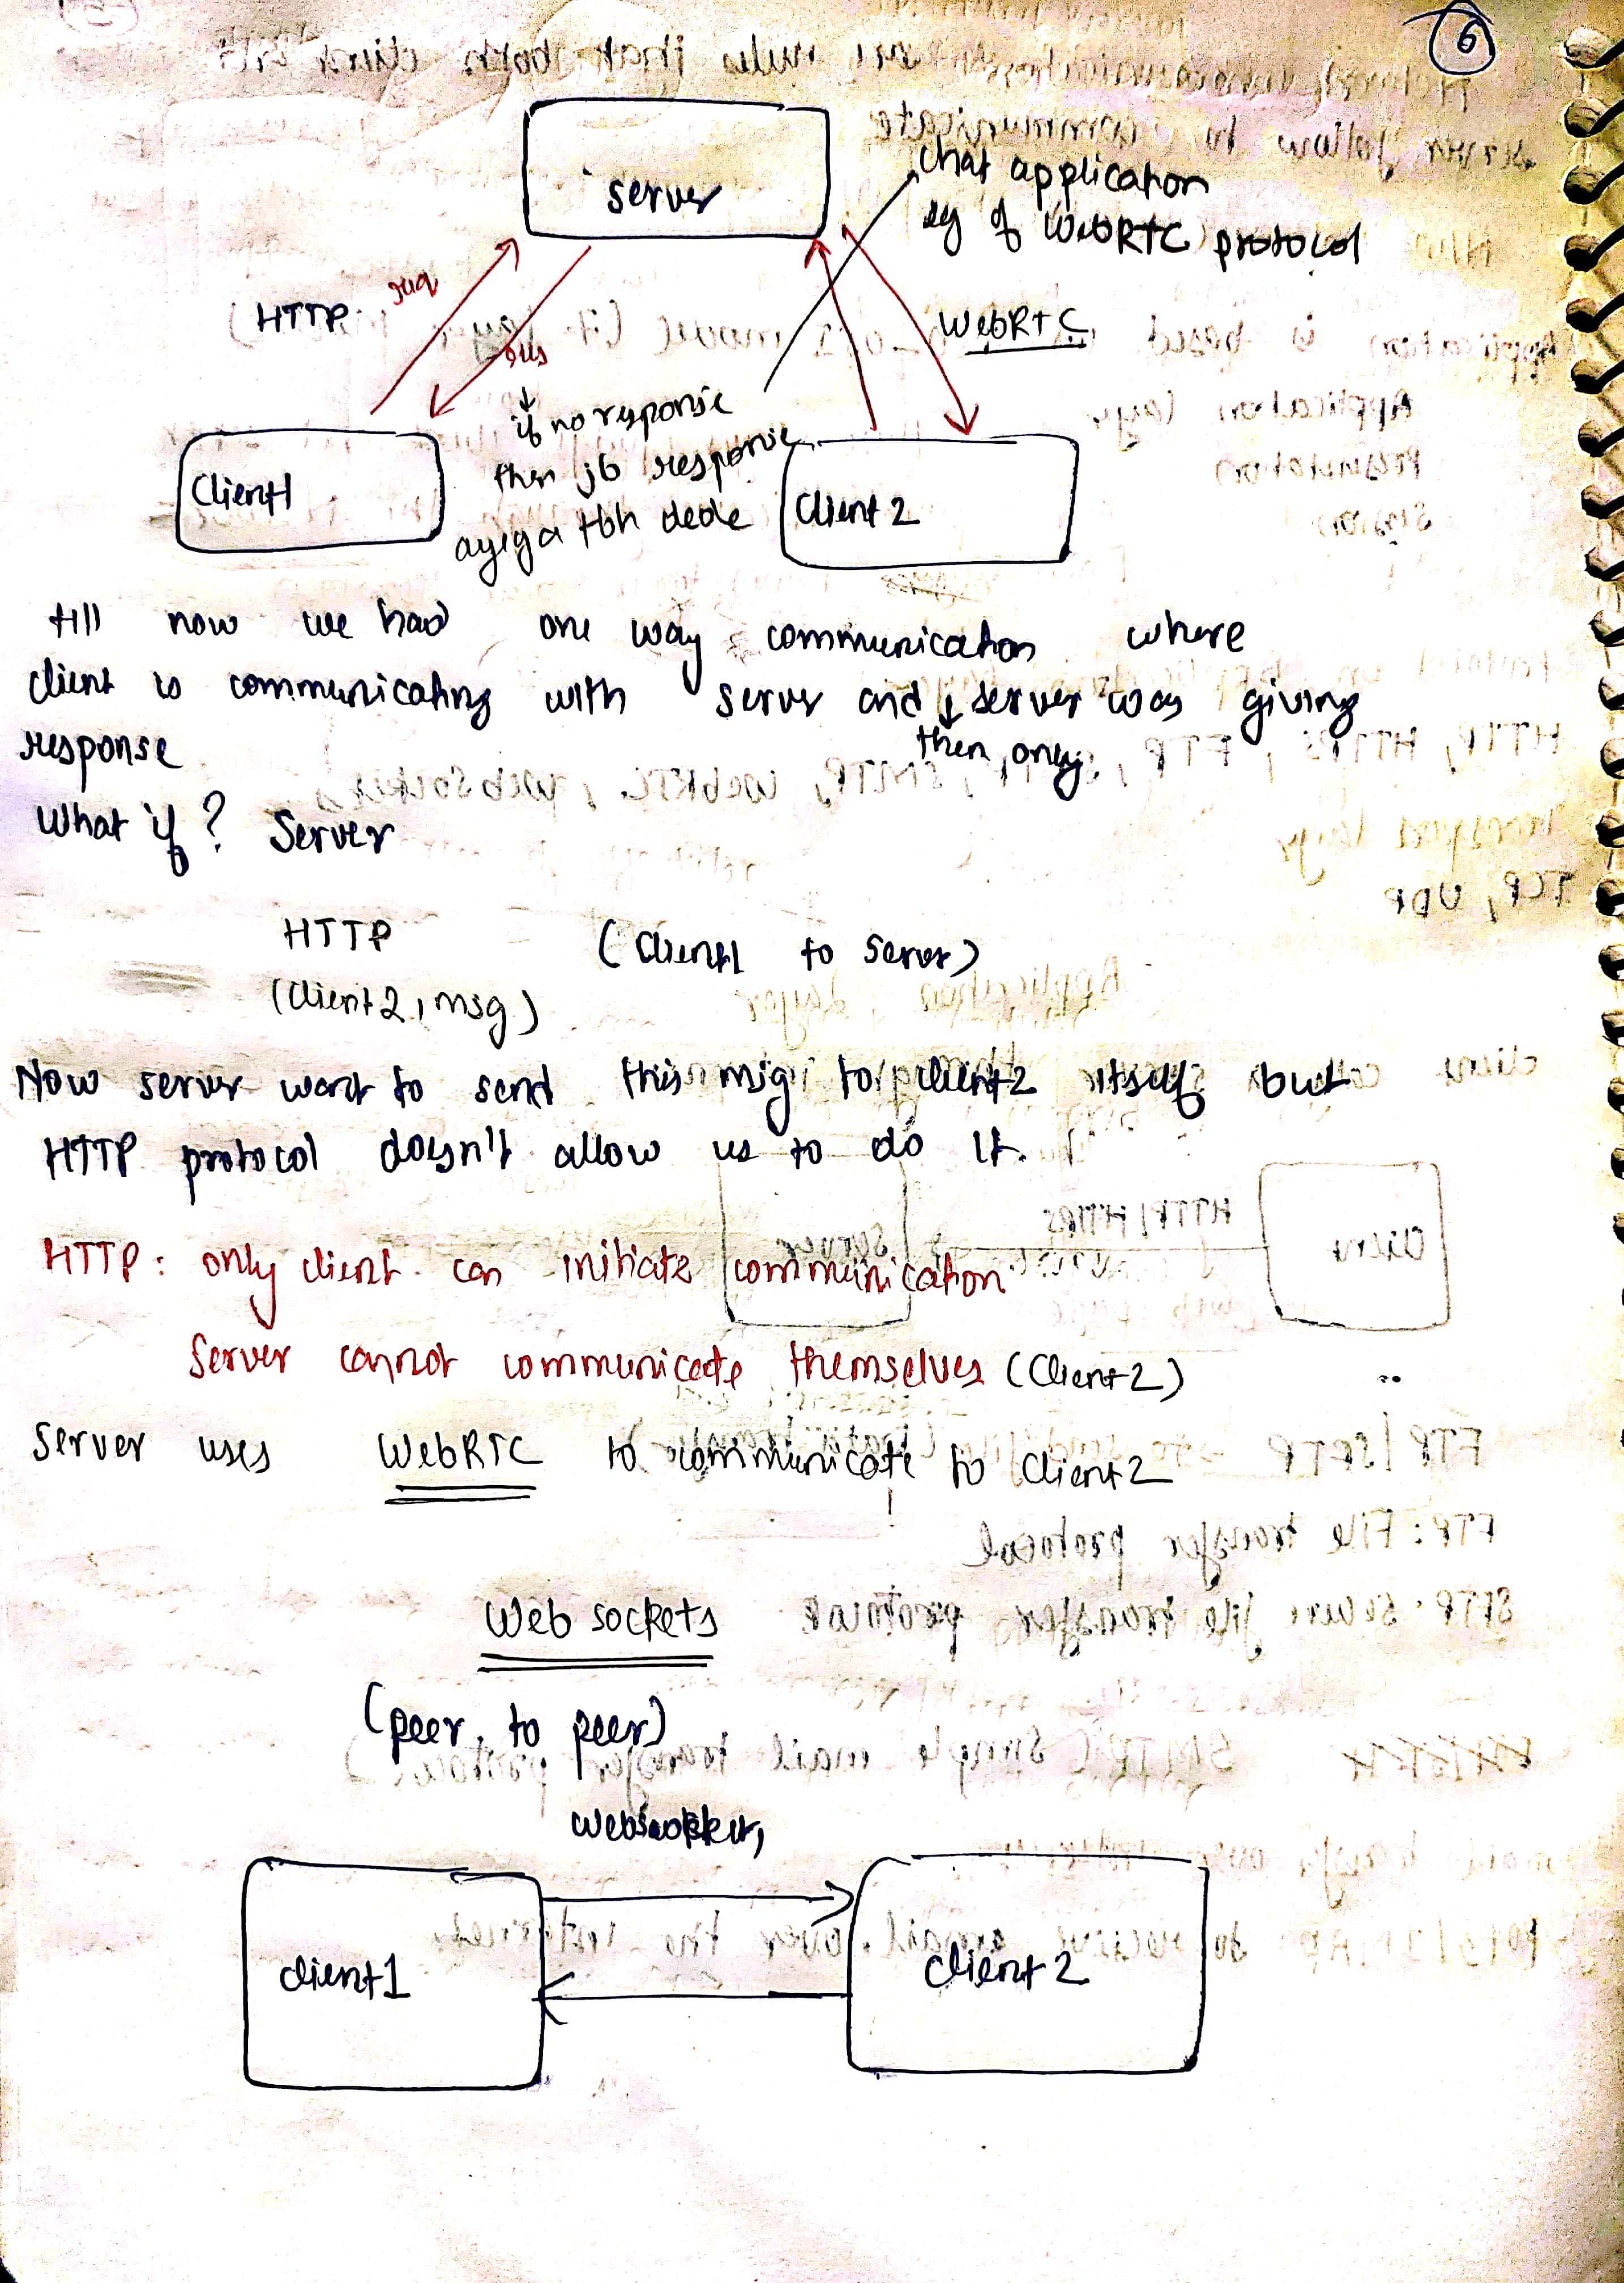 6
server
chat application
eg of WebRTC protocol
HTTP req
res
WebRTC
↓
if no response
then jb response
ayega tbh dede
Client1
Client 2
till now we had one way communication where
client is communicating with server and ↓ server was giving
then only
response
What if? Server
HTTP (Client1 to server)
(Client2, msg)
Now server want to send this msg to client2 itself but
HTTP protocol doesn't allow us to do it.
HTTP: only client can initiate communication
Server cannot communicate themselves (Client2)
Server uses WebRTC to communicate to Client2
Web sockets
(peer to peer)
client1
client 2